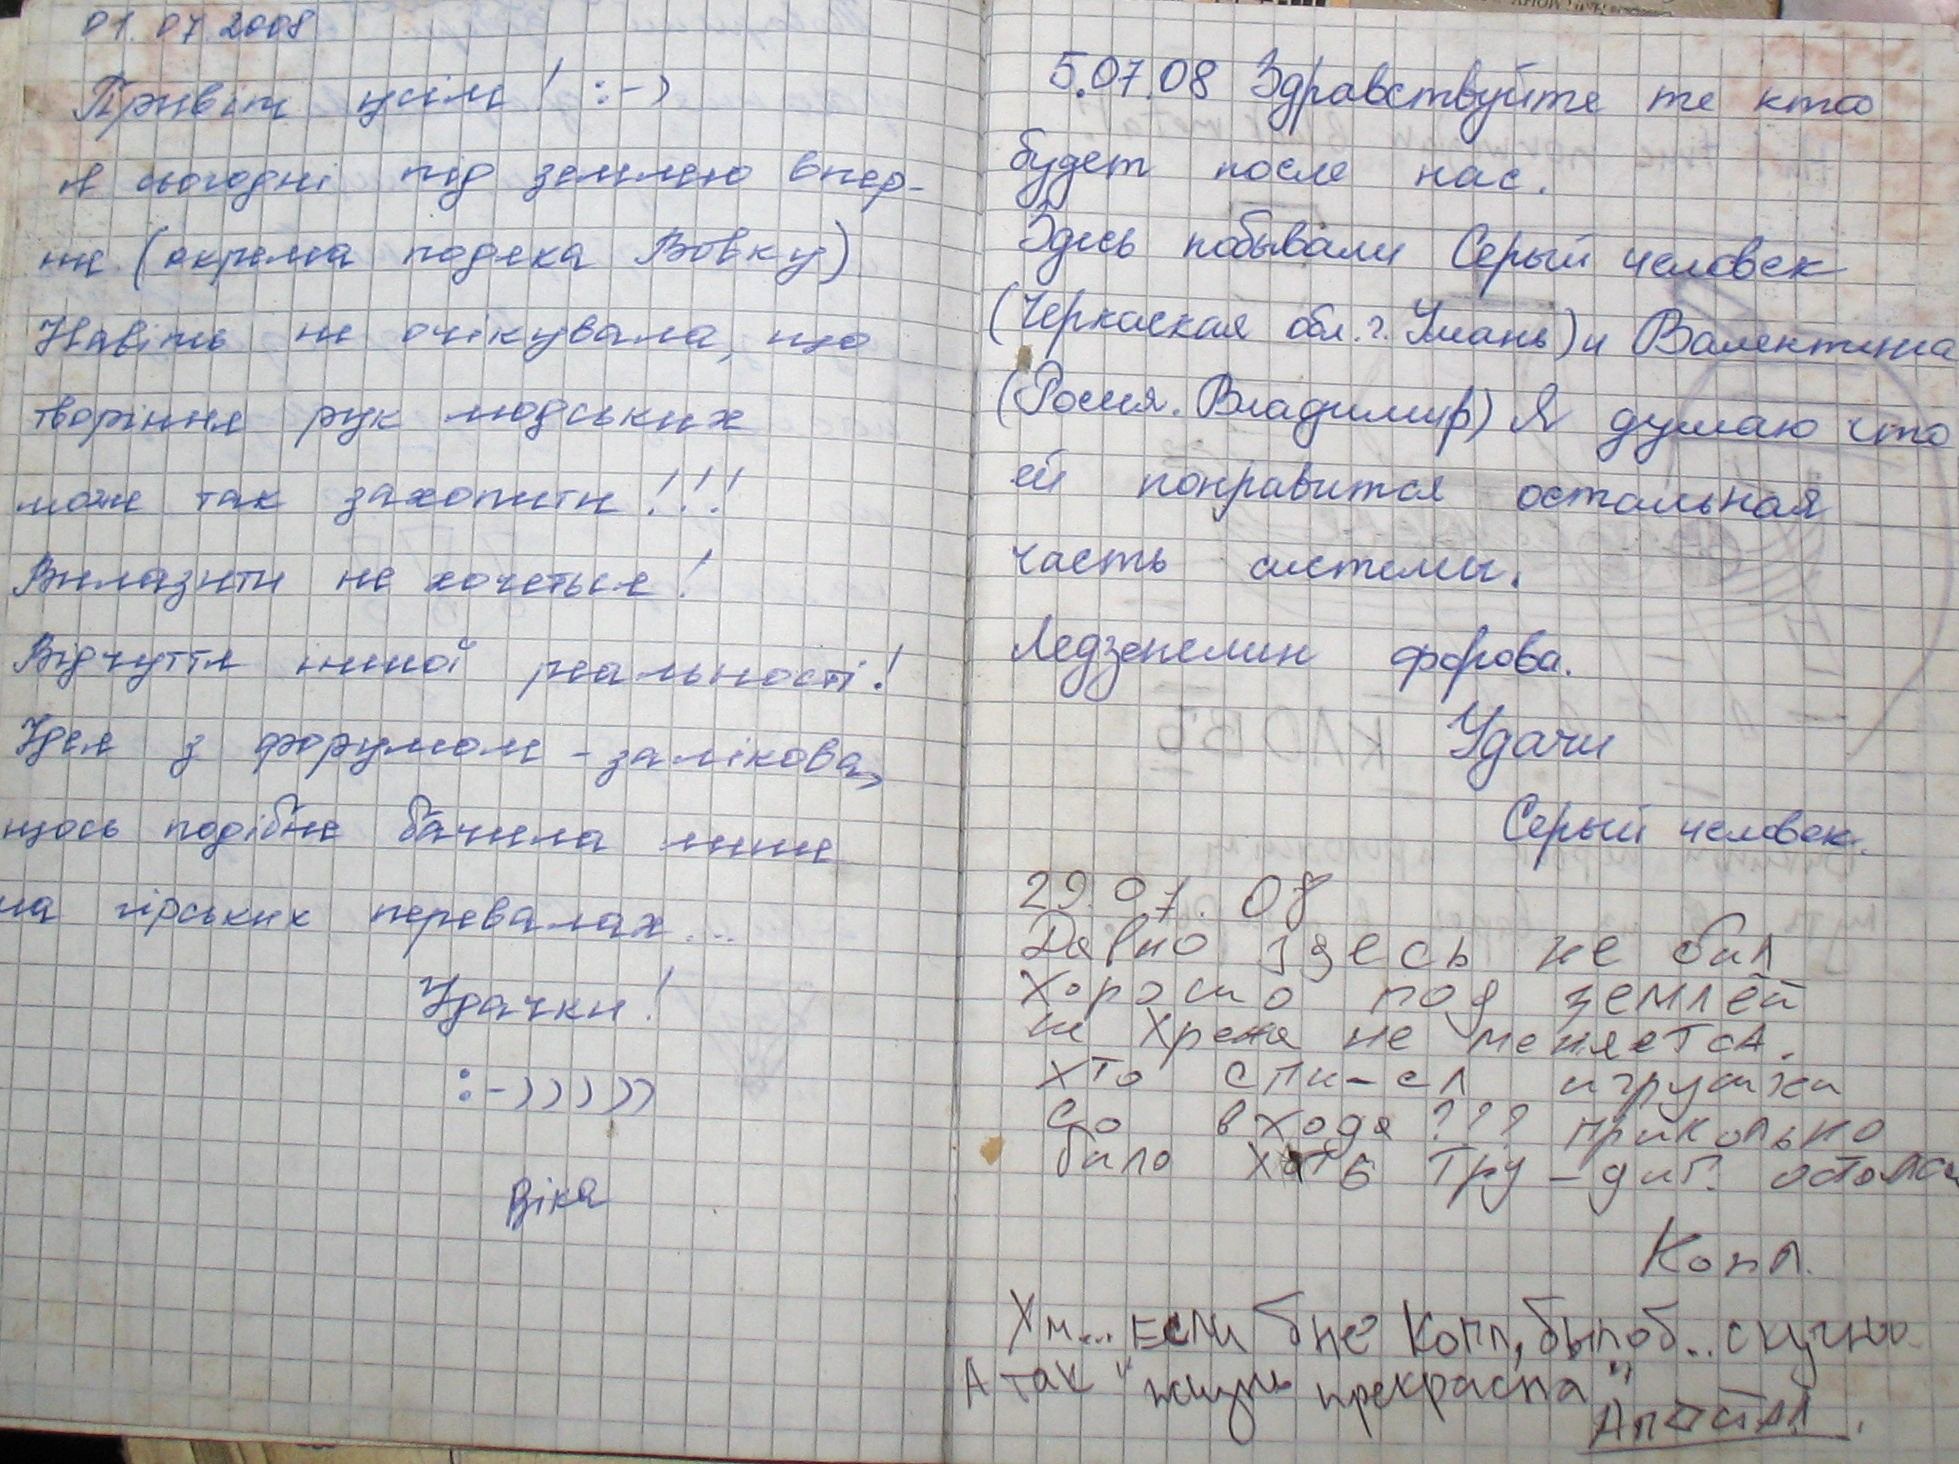 01.07.2008
Привіт усім! :-)
я сьогодні під землею впер-
ше (окрема подяка Вовку)
Навіть не очікувала, що
творіння рук людських
може так захопити!!!
Вилазити не хочеться!
Відчуття іншої реальності!
Ідея з форумом - залікова,
щось подібне бачила лише
на гірських перевалах...
Удачки!
:-)))))
Віка
5.07.08 Здравствуйте те кто
будет после нас.
Здесь побывали Серый человек
(Черкаская обл. г. Умань) и Валентина
(Росия. Владимир) Я думаю что
ей понравится остальная
часть системы.
Ледзепелин форева.
Удачи
Серый человек.
29.07.08
Давно здесь не бил
Хорошо под землей
ни хрена не меняетсА.
хто спи-сл игрушки
со входа??? прикольно
било хоть тру-дит.
Копл.
Хм... Если б не Копл, было б.. скучно.
А так "жизнь прекрасна"